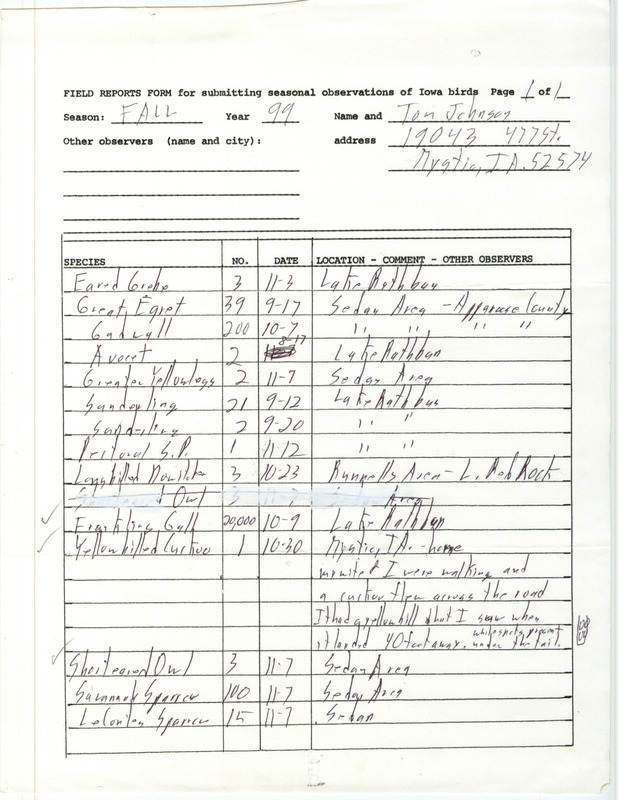 FIELD REPORTS FORM for submitting seasonal observations of Iowa birds Page 1 of 1
Season: FALL Year 99 Name and Tom Johnson
Other observers (name and city): address 19043 477 St.
Mystic, IA. 52574
SPECIES NO. DATE LOCATION - COMMENT - OTHER OBSERVERS
Eared Grebe 3 11-3 Lake Rathbun
Great Egret 39 9-17 Sedan Area - Appanoose County
Gadwall 200 10-7 " " " "
Avocet 2 8-17 Lake Rathbun
Greater Yellowlegs 2 11-7 Sedan Area
Sanderling 21 9-12 Lake Rathbun
Sanderling 2 9-20 " "
Pectoral S.P. 1 11-12 " "
Longbilled Dowitcher 3 10-23 Runnells Area - L. Red Rock
Owl 3 11-7 Area
Franklins Gull 20,000 10-9 Lake Rathbun
Yellowbilled Cuckoo 1 10-30 Mystic, IA. - home
my wife & I were walking and
a cuckoo flew across the road
It had a yellow bill that I saw when
it landed 40 feet away. white spots present under the tail.
Shorteared Owl 3 11-7 Sedan Area
Savannah Sparrow 100 11-7 Sedan Area
LeContes Sparrow 15 11-7 Sedan